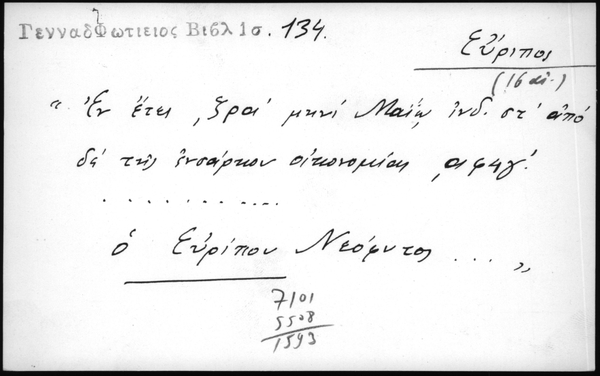 Γενναδ Φωτιειος Βιβλ 1σ. 134.
Εὔριπος
(16 αἰ.)
"Ἐν ἔτει ,ζραʹ μηνί Μαΐῳ ἰνδ. στʹ ἀπό
δέ τῆς ἐνσάρκου οἰκονομίας ,αφϟγʹ.
. . . . . . . . . . . .
ὁ Εὐρίπου Νεόφυτος ... "
7101
5508
1593